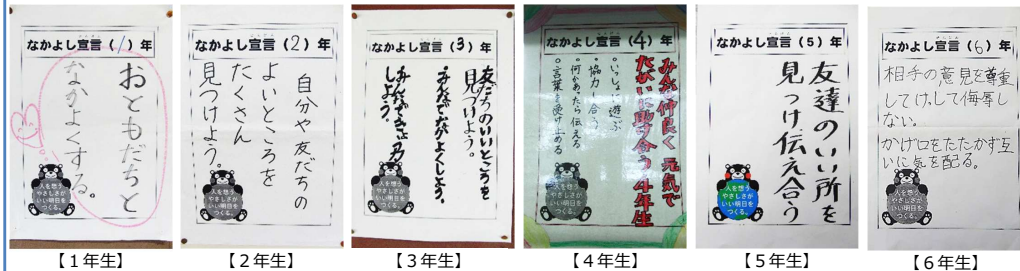 なかよし宣言(1)年
おともだちと
なかよくする。
人を想う
やさしさが
いい明日を
つくる。
【1年生】
なかよし宣言(2)年
自分や友だちの
よいところを
たくさん
見つけよう。
人を想う
やさしさが
いい明日を
つくる。
【2年生】
なかよし宣言(3)年
友だちのいいところを
見つけよう。
みんなでなかよくしよう。
しよう。
人を想う
やさしさが
いい明日を
つくる。
【3年生】
なかよし宣言(4)年
みんな仲良く 元気で
たがいに助け合う 4年生
○いっしょに遊ぶ
○協力し合う
○何かあったら伝える
○言葉を受け止める
人を想う
やさしさが
いい明日を
つくる。
【4年生】
なかよし宣言(5)年
友達のいい所を
見つけ伝え合う
人を想う
やさしさが
いい明日を
つくる。
【5年生】
なかよし宣言(6)年
相手の意見を尊重
してけっして侮辱し
ない。
かげ口をたたかず互
いに気を配る。
人を想う
やさしさが
いい明日を
つくる。
【6年生】